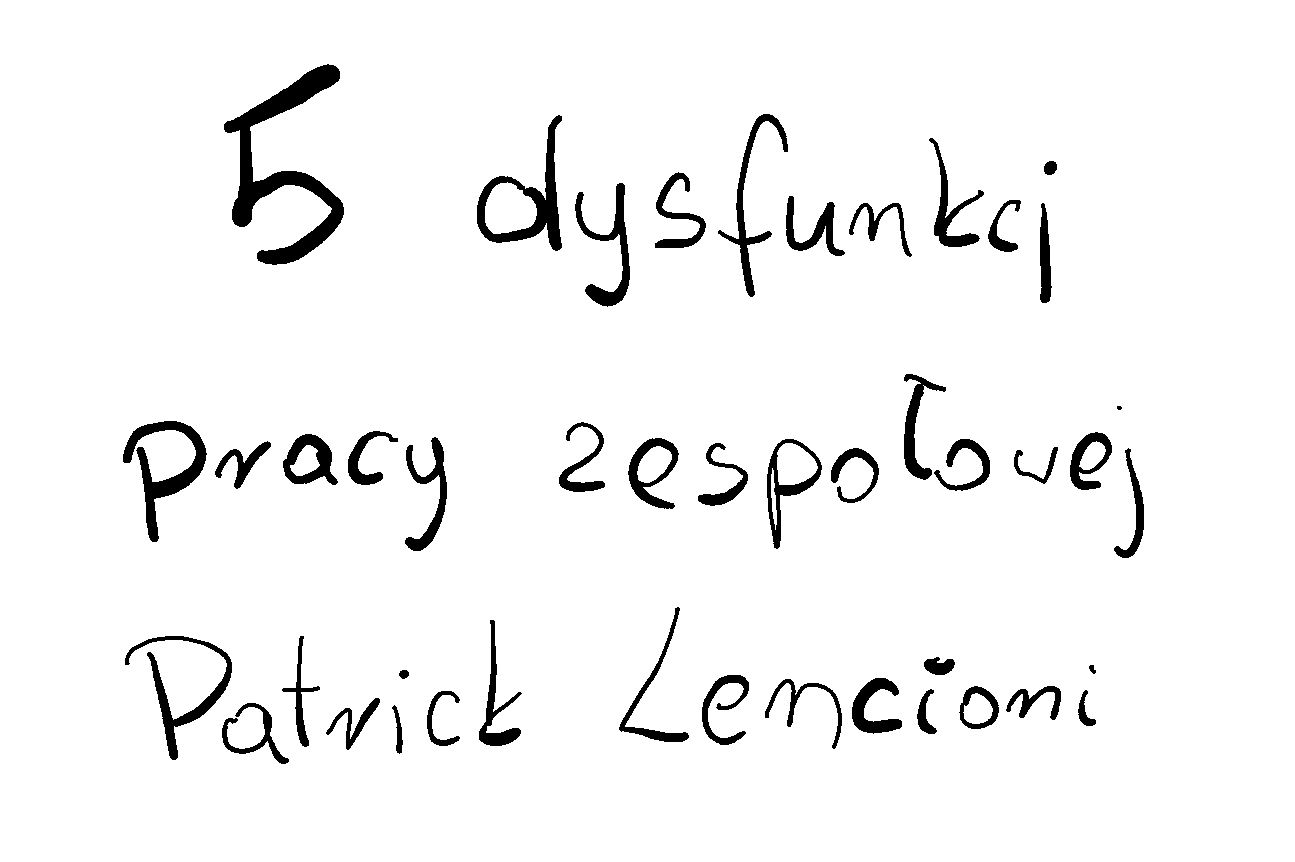 5 dysfunkcj
pracy zespołowej
Patrick Lencioni